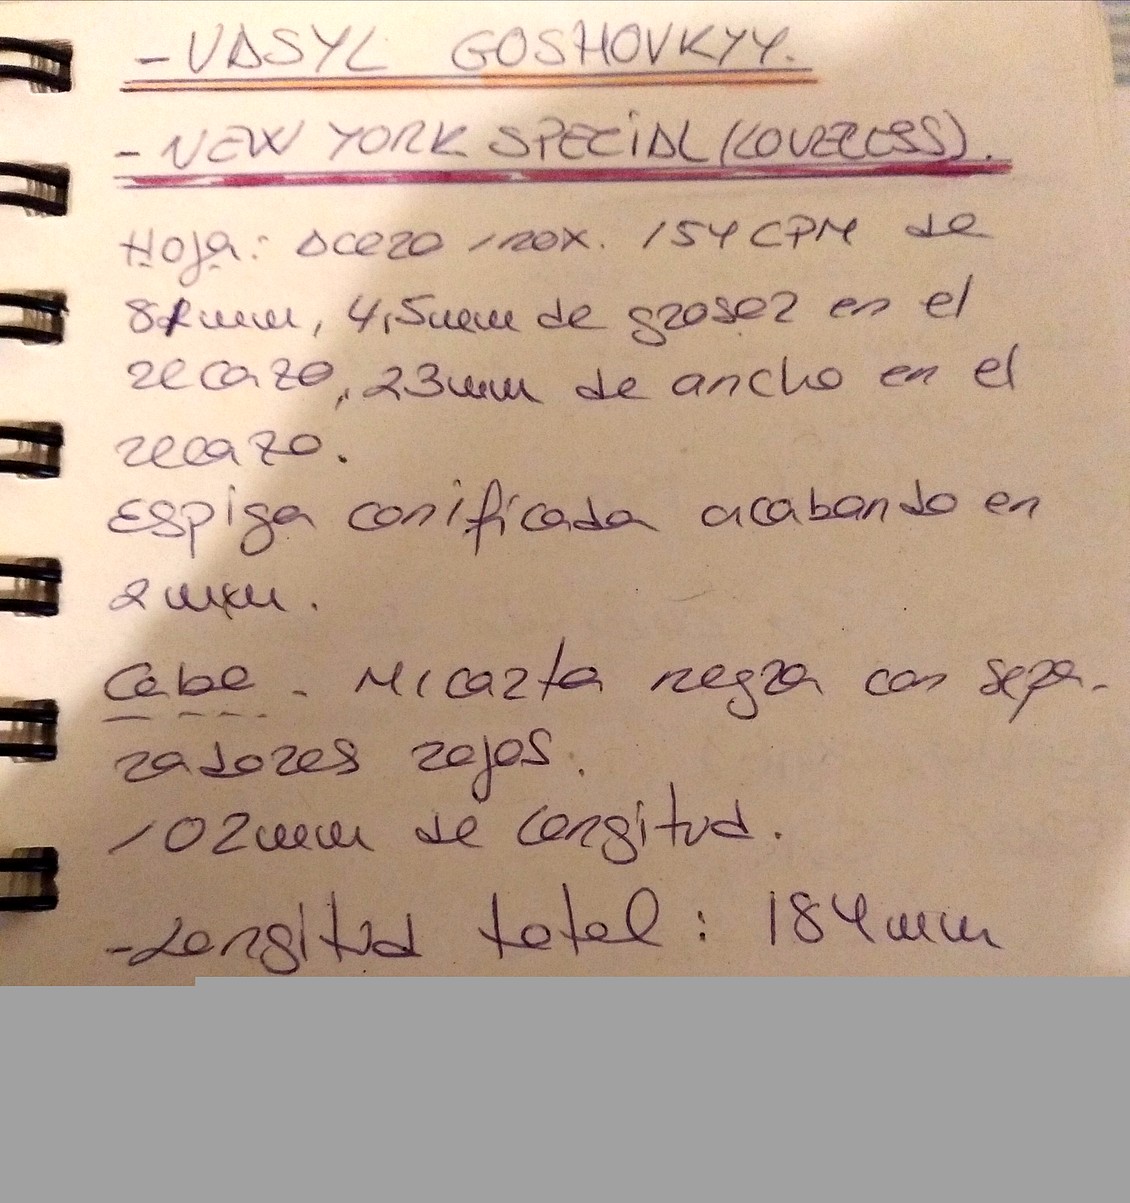 - VASYL GOSHOVKYY.
- NEW YORK SPECIAL (LOVELESS).
Hoja: Acero inox. 154CPM de
82mm, 4,5mm de grosor en el
recazo, 23mm de ancho en el
recazo.
Espiga conificada acabando en
2 mm.
Cabo - Micarta negra con sepa-
radores rojos.
102mm de longitud.
- Longitud total: 184mm